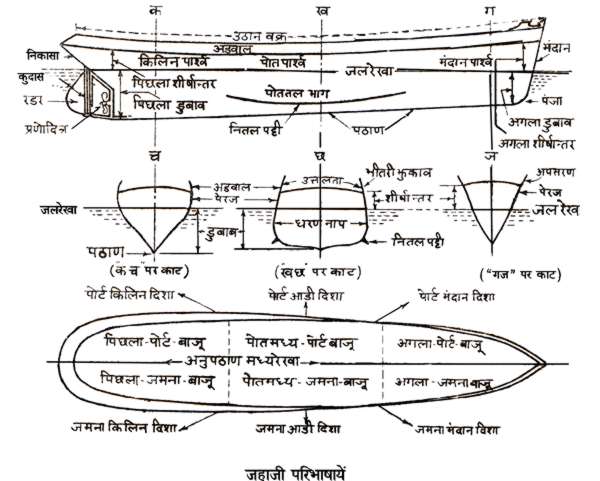 क ख ग
उठान वक्र
अड़वाल
निकासा
किलिन पार्श्व पोत पार्श्व मंदान पार्श्व मंदान
जलरेखा
कुदास
पिछला शीर्षान्तर
रडर
पिछला डुबाव
पोततल भाग
पंजा
प्रणोदित्र
नितल पट्टी पठाण
अगला डुबाव
अगला शीर्षान्तर
च छ ज
भीतरी झुकाव
अपसरण
अड़वाल उत्तालता
पेरज
पेरज
शीर्षान्तर
जलरेखा
जलरेख
डुबाव
धरण नाप
नितल पट्टी
पठाण
("कच" पर काट) (खछ" पर काट) ("गज" पर काट)
पोर्ट किलिन दिशा पोर्ट आडी दिशा पोर्ट मंदान दिशा
पिछला-पोर्ट-बाजू पोतमध्य-पोर्ट बाजू अगला-पोर्ट-बाजू
अनुपठाण मध्यरेखा
पिछला-जमना-बाजू पोतमध्य-जमना-बाजू अगला-जमना बाजू
जमना किलिन दिशा जमना आडी दिशा जमना मंदान दिशा
जहाजी परिभाषायें